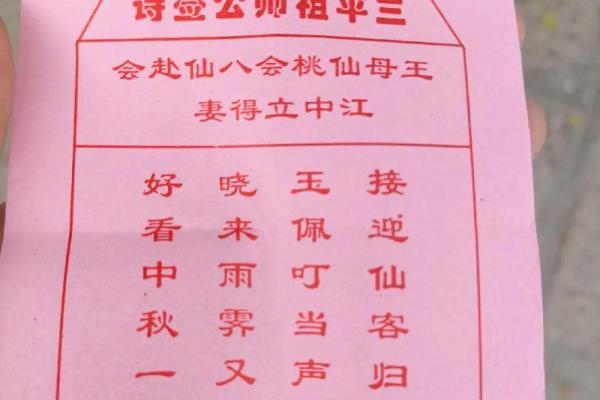 三平祖师公签诗
王母仙桃会八仙赴会
江中立得妻
接迎仙客归
玉佩叮当声
晓来雨霁又
好看中秋一